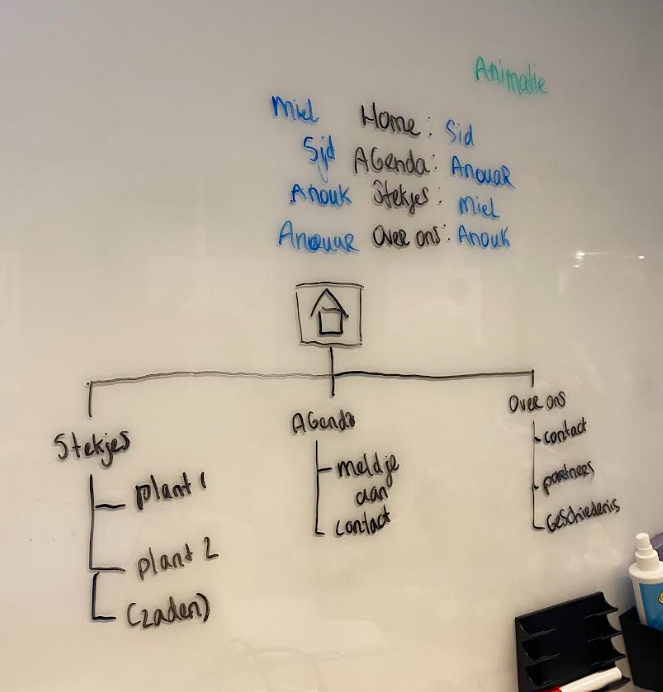 Animatie
Miel Home: Sid
Sjd AGenda: AnouaR
Anouk Stekjes: Miel
Anouar Over ons: Anouk
Stekjes
plant 1
plant 2
(zaden)
AGenda
meld je
aan
contact
Over ons
contact
partners
Geschiedenis